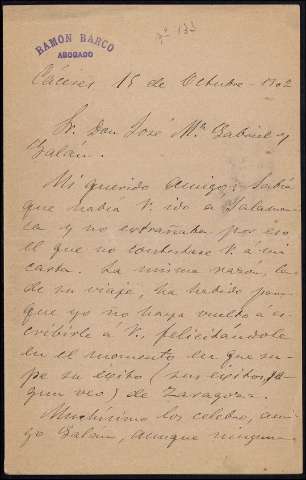 RAMON BARCO
ABOGADO
nº 133
Cáceres 15 de Octubre - 1902
Sr. Don José Mª Gabriel y
Galán.
Mi querido amigo: Sabía
que había V. ido a Salaman-
ca y no extrañaba por eso
el que no contestase V. á mi
carta. La misma razón, la
de su viaje, ha habido para
que yo no haya vuelto á es-
cribirle á V., felicitándole
en el momento en que su-
pe su éxito (sus éxitos, se-
gun veo) de Zaragoza.
Muchísimo los celebro, ami-
go Galán, aunque ninguno